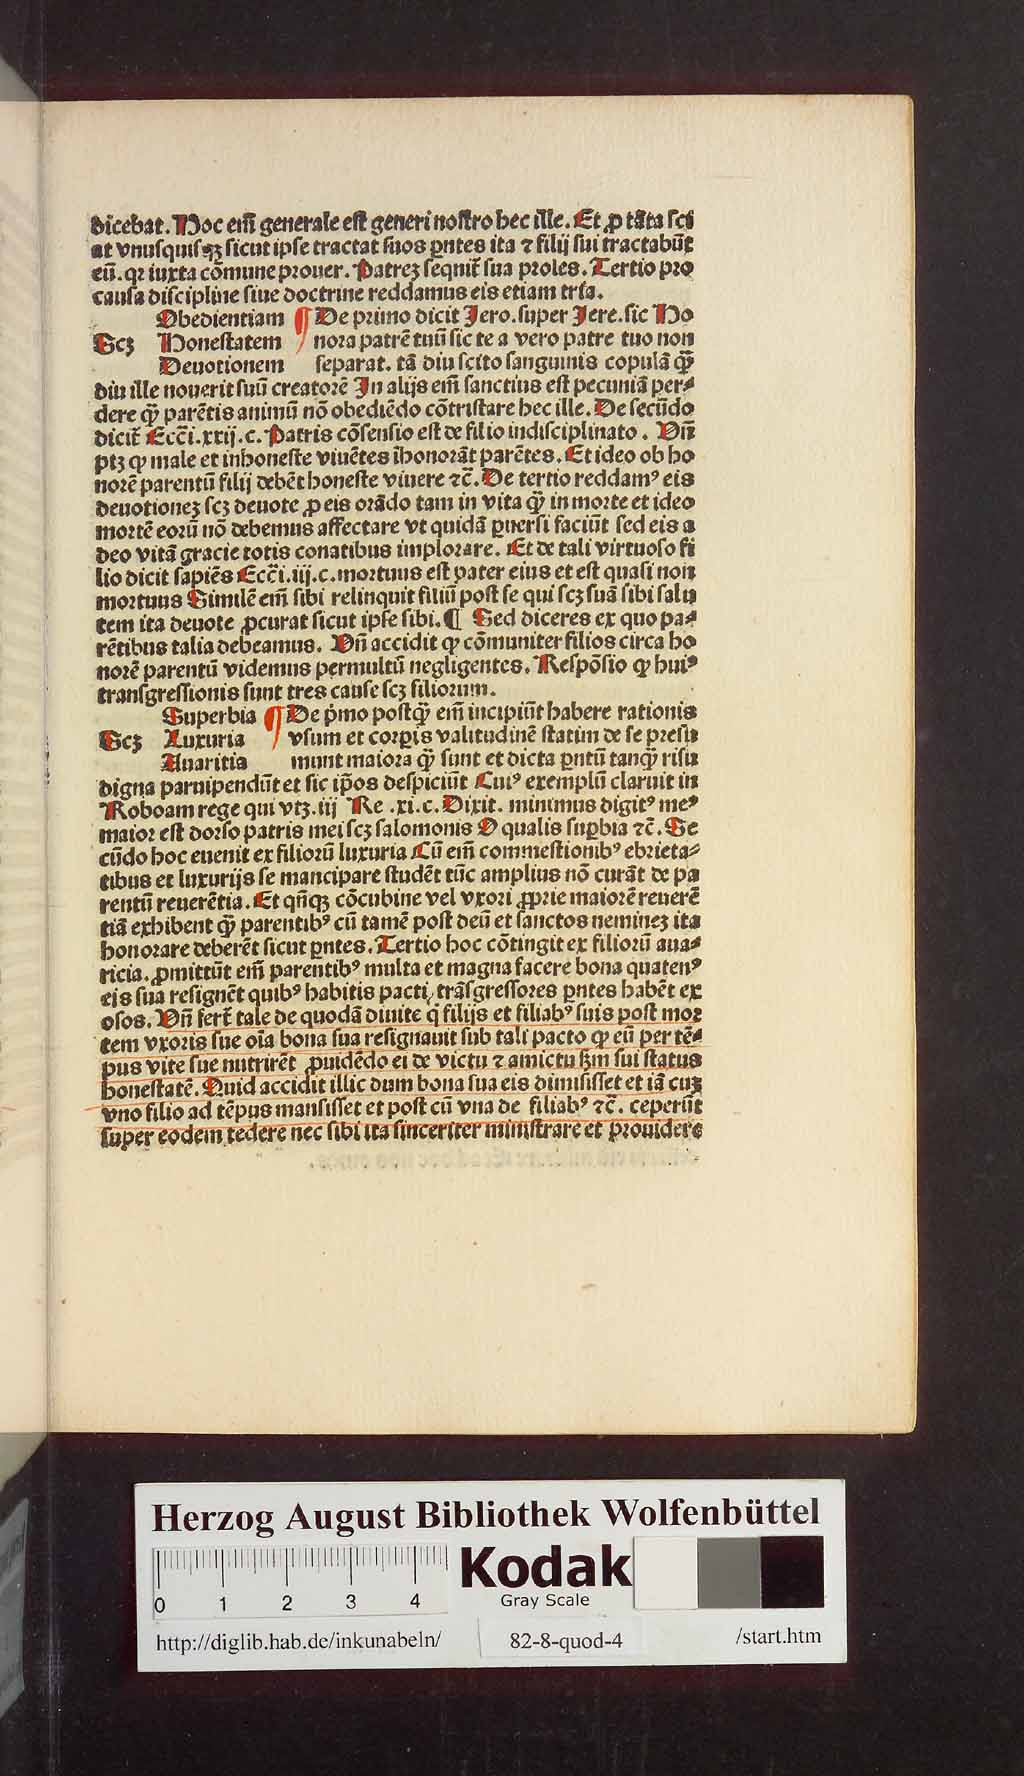 dicebat. Hoc em̄ generale est generi nostro hec ille. Et ꝓ tāta sci
at vnusquisqꝫ sicut ipse tractat suos pntes ita ⁊ filij sui tractabūt
eū. qꝛ iuxta cōmune prouer. Patreꝫ sequit̄ sua proles. Tertio pro
causa discipline siue doctrine reddamus eis etiam tria.
Obedientiam ¶ De primo dicit Jero. super Jere. sic Ho
Scꝫ Honestatem nora patrē tuū sic te a vero patre tuo non
Deuotionem separat. tā diu scito sanguinis copulā q̄ꝫ
diu ille nouerit suū creatorē In alijs em̄ sanctius est pecuniā per⸗
dere q̄ꝫ parētis animū nō obediēdo cōtristare hec ille. De secūdo
dicit̄ Ecc̄i. xxij. c. Patris cōfensio est de filio indisciplinato. Vn̄
ptꝫ ꝙ male et inhoneste viuētes īhonorāt parētes. Et ideo ob ho
norē parentū filij debēt honeste viuere ⁊c̄. De tertio reddamꝰ eis
deuotioneꝫ scꝫ deuote ꝓ eis orādo tam in vita q̄ꝫ in morte et ideo
mortē eorū nō debemus affectare vt quidā ꝑuersi faciūt sed eis a
deo vitā gracie totis conatibus implorare. Et de tali virtuoso fi
lio dicit sapiēs Ecc̄i. iij. c. mortuus est pater eius et est quasi non
mortuus Similē em̄ sibi relinquit filiū post se qui scꝫ suā sibi salu
tem ita deuote ꝓcurat sicut ipse sibi. ¶ Sed diceres ex quo pa⸗
rētibus talia debeamus. Vn̄ accidit ꝙ cōmuniter filios circa ho
norē parentū videmus permultū negligentes. Respōsio ꝙ huiꝰ
transgressionis sunt tres cause scꝫ filiorum.
Superbia ¶ De p̄mo postq̄ꝫ em̄ incipiūt habere rationis
Scꝫ Luxuria vsum et corꝑis valitudinē statim de se presu
Auaritia munt maiora q̄ꝫ sunt et dicta ꝑntū tanq̄ꝫ risu
digna paruipendūt et sic ip̄os despiciūt Cuiꝰ exemplū claruit in
Roboam rege qui vtꝫ. iij Re. xi. c. Dixit. minimus digitꝰ meꝰ
maior est dorso patris mei scꝫ salomonis O qualis suꝑbia ⁊c̄. Se
cūdo hoc euenit ex filiorū luxuria Cū em̄ commestionibꝰ ebrieta⸗
tibus et luxurijs se mancipare studēt tūc amplius nō curāt de pa
rentū reuerētia. Et qn̄qꝫ cōcubine vel vxori ꝓprie maiorē reuerē
tiā exhibent q̄ꝫ parentibꝰ cū tamē post deū et sanctos nemineꝫ ita
honorare deberēt sicut ꝑntes. Tertio hoc cōtingit ex filiorū aua⸗
ricia. ꝓmittūt em̄ parentibꝰ multa et magna facere bona quatenꝰ
eis sua resignēt quibꝰ habitis pacti, trāsgressores ꝑntes habēt ex
osos. Vn̄ fert̄ tale de quodā diuite q̄ filijs et filiabꝰ suis post mor
tem vxoris sue oīa bona sua resignauit sub tali pacto ꝙ eū per tē⸗
pus vite sue nutrirēt ꝓuidēdo ei de victu ⁊ amictu ẜm sui status
honestatē. Quid accidit illic dum bona sua eis dimisisset et iā cuꝫ
vno filio ad tēpus mansisset et post cū vna de filiabꝰ ⁊c̄. ceperūt
super eodem tedere nec sibi ita sinceriter ministrare et prouidere
Herzog August Bibliothek Wolfenbüttel
0 1 2 3 4
Kodak
Gray Scale
http://diglib.hab.de/inkunabeln/ 82-8-quod-4 /start.htm